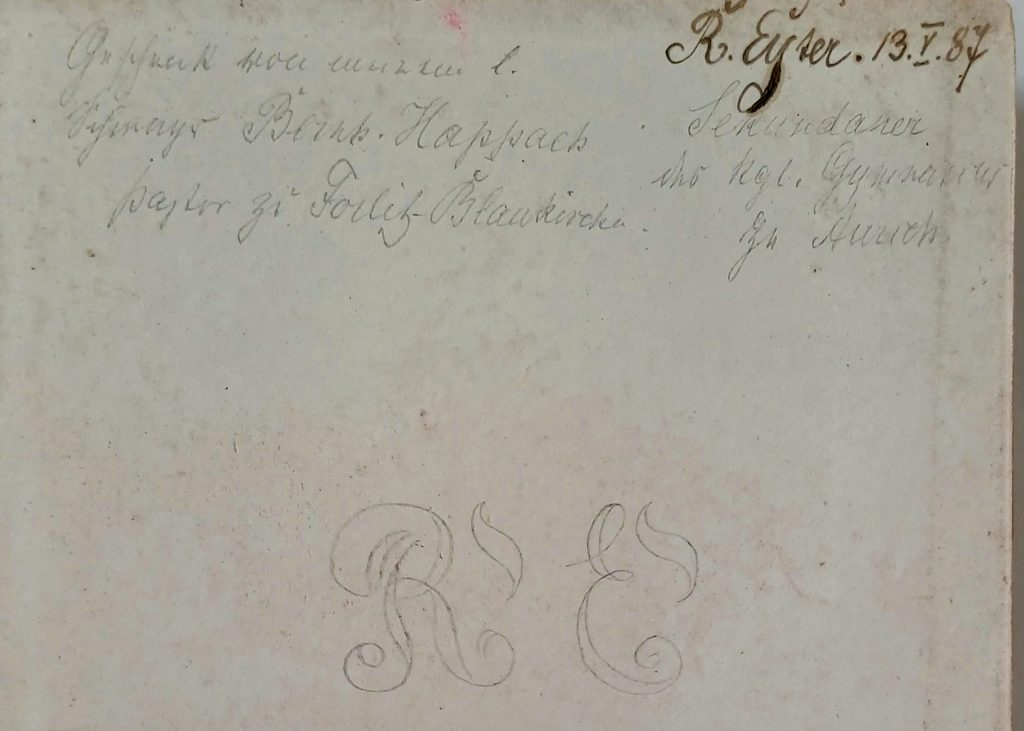 Geschenk von meinem l.
Schwager Bernh. Happach
Pastor zu Forlitz-Blaukirchen.
R. Eyter. 13.V.87
Sekundaner
des kgl. Gymnasiums
zu Aurich
R E